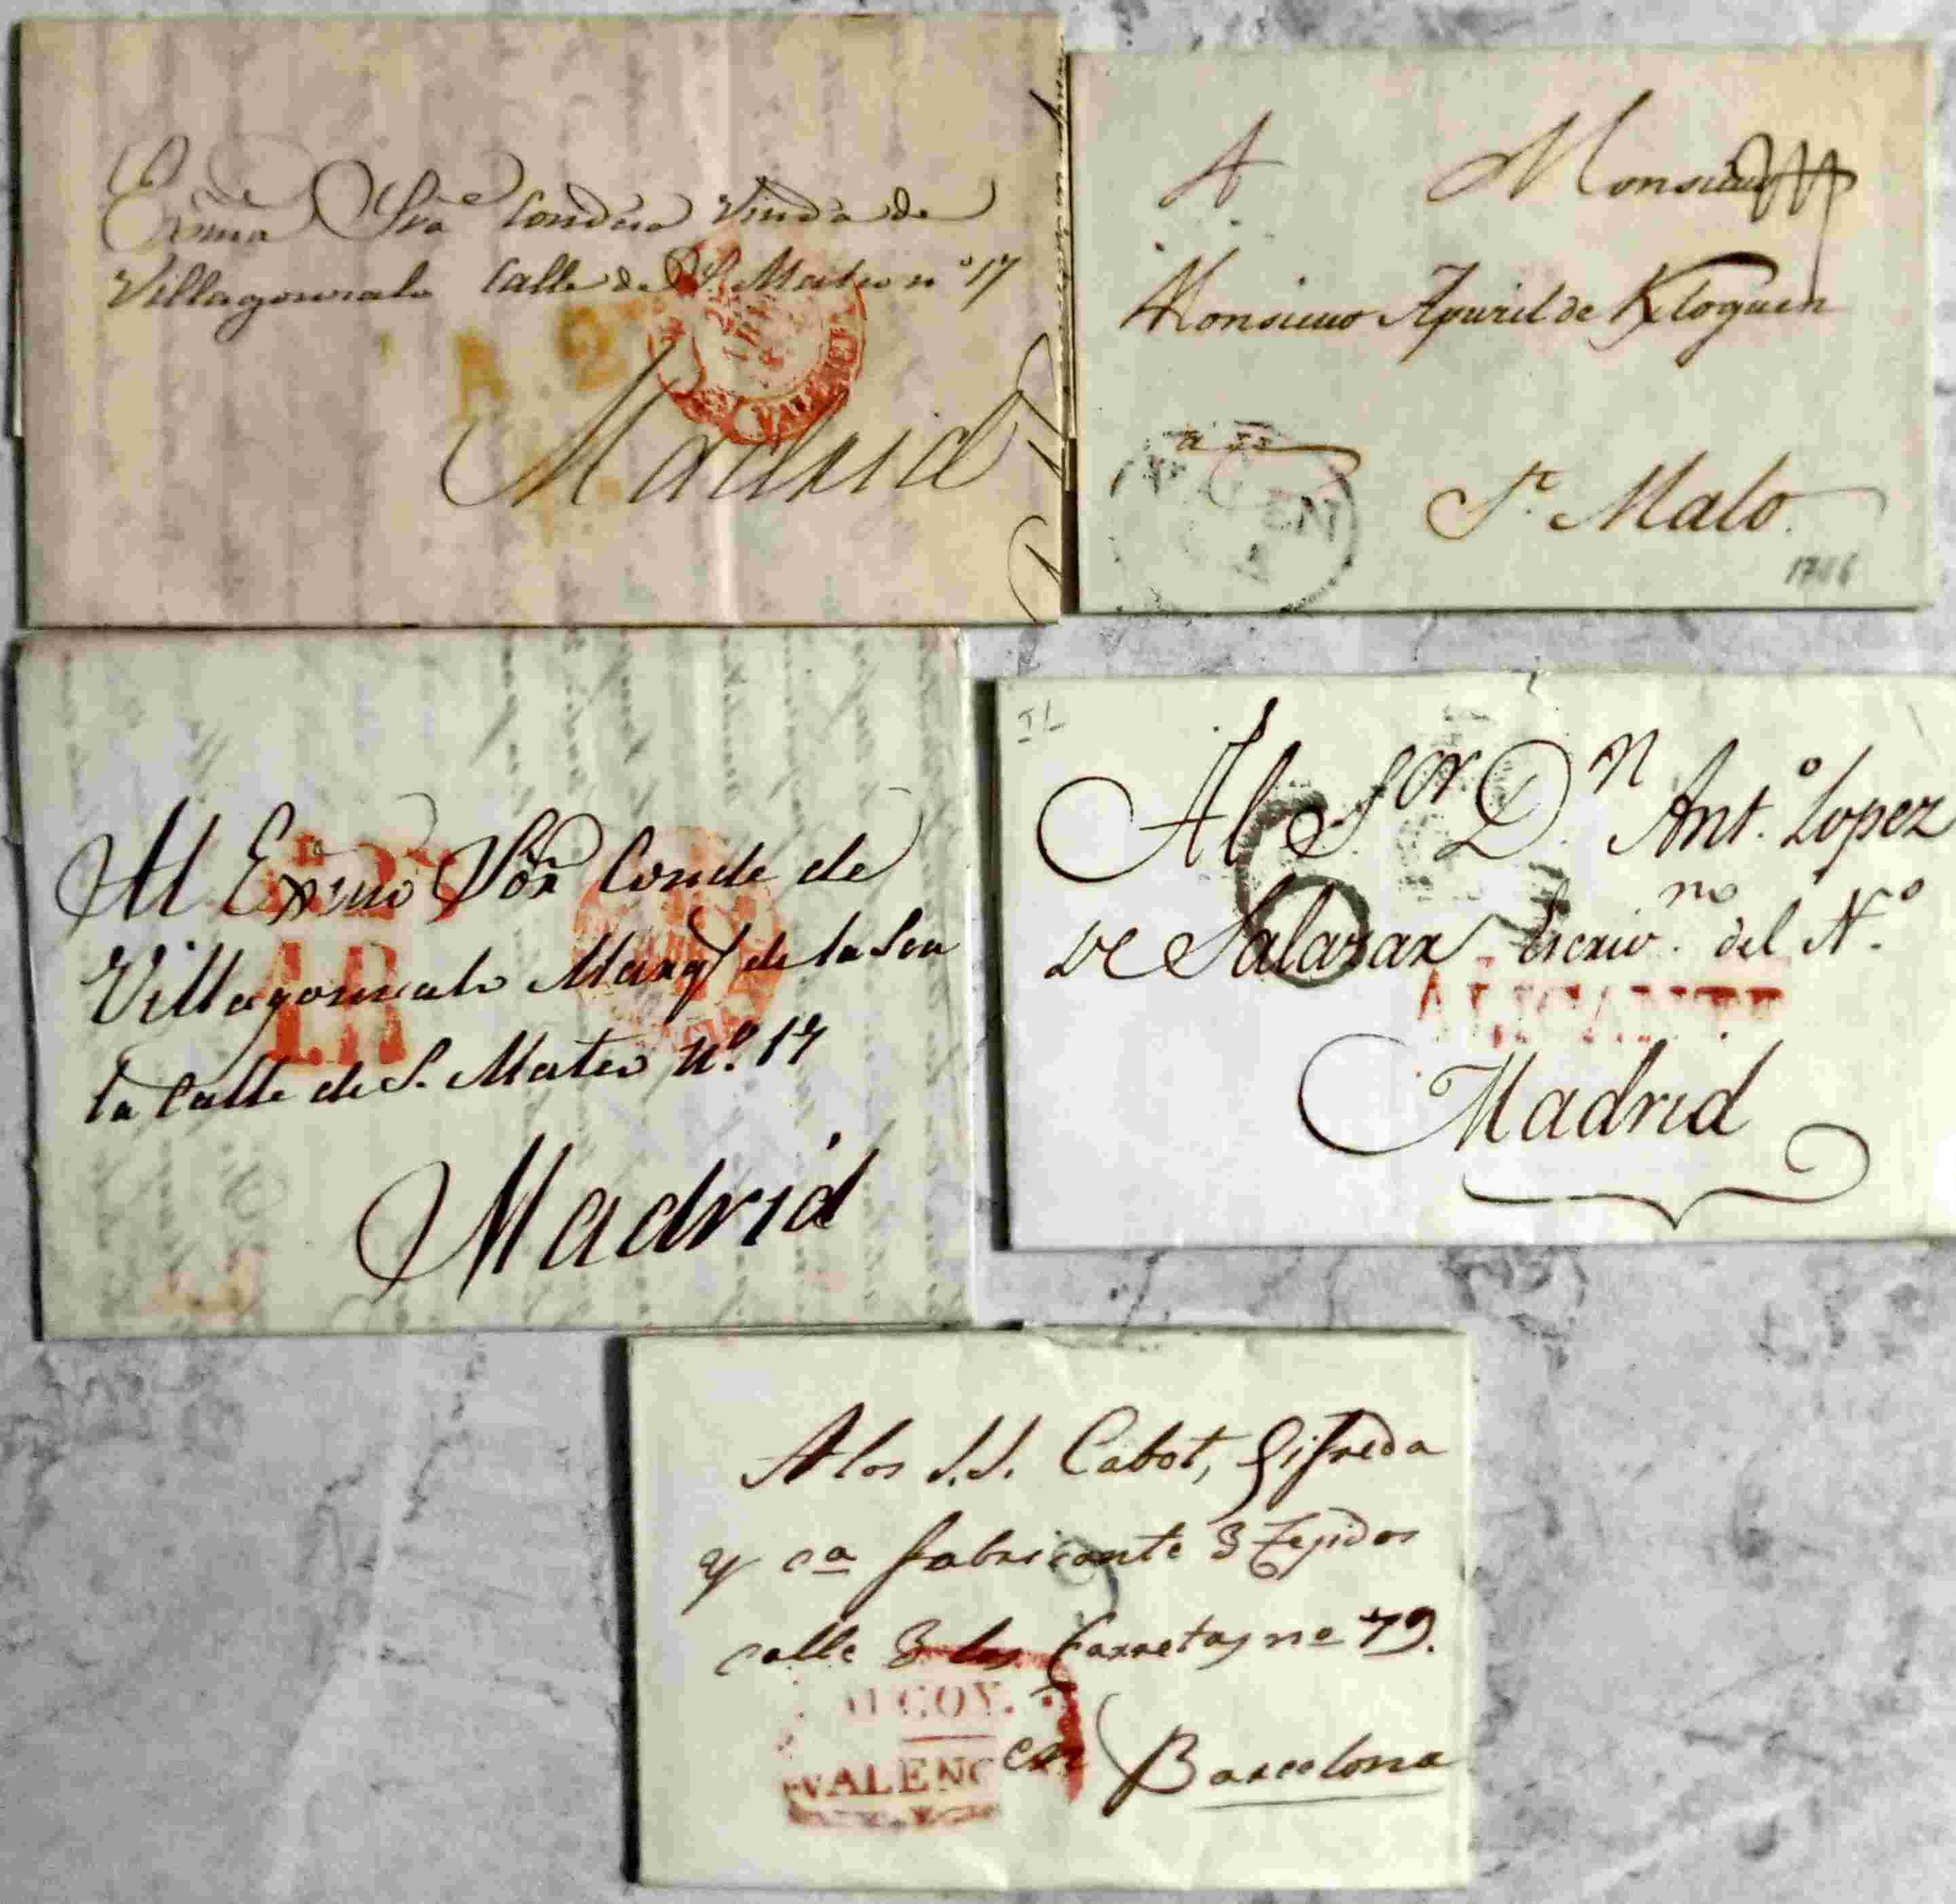 Exma Sra Condesa Viuda de
Villagonzalo Calle de S. Mateo nº 17
A. 2
Madrid
A Monsieur
Monsieur Apuril de Kloguen
a
VALEN
St. Malo
1786
Al Exmo Sor Conde de
Villagonzalo Marqs de la Scala
la Calle de S. Mateo Nº 17
Madrid
IL
Al Sor. Dn. Anto. Lopez
de Salazar Escrivno. del No.
ALICANTE
Madrid
A los S.S. Cabot, Gifreda
y ca fabricante de Tejidos
calle de las Carretas no 79.
ALCOY.
VALENC
en Barcelona